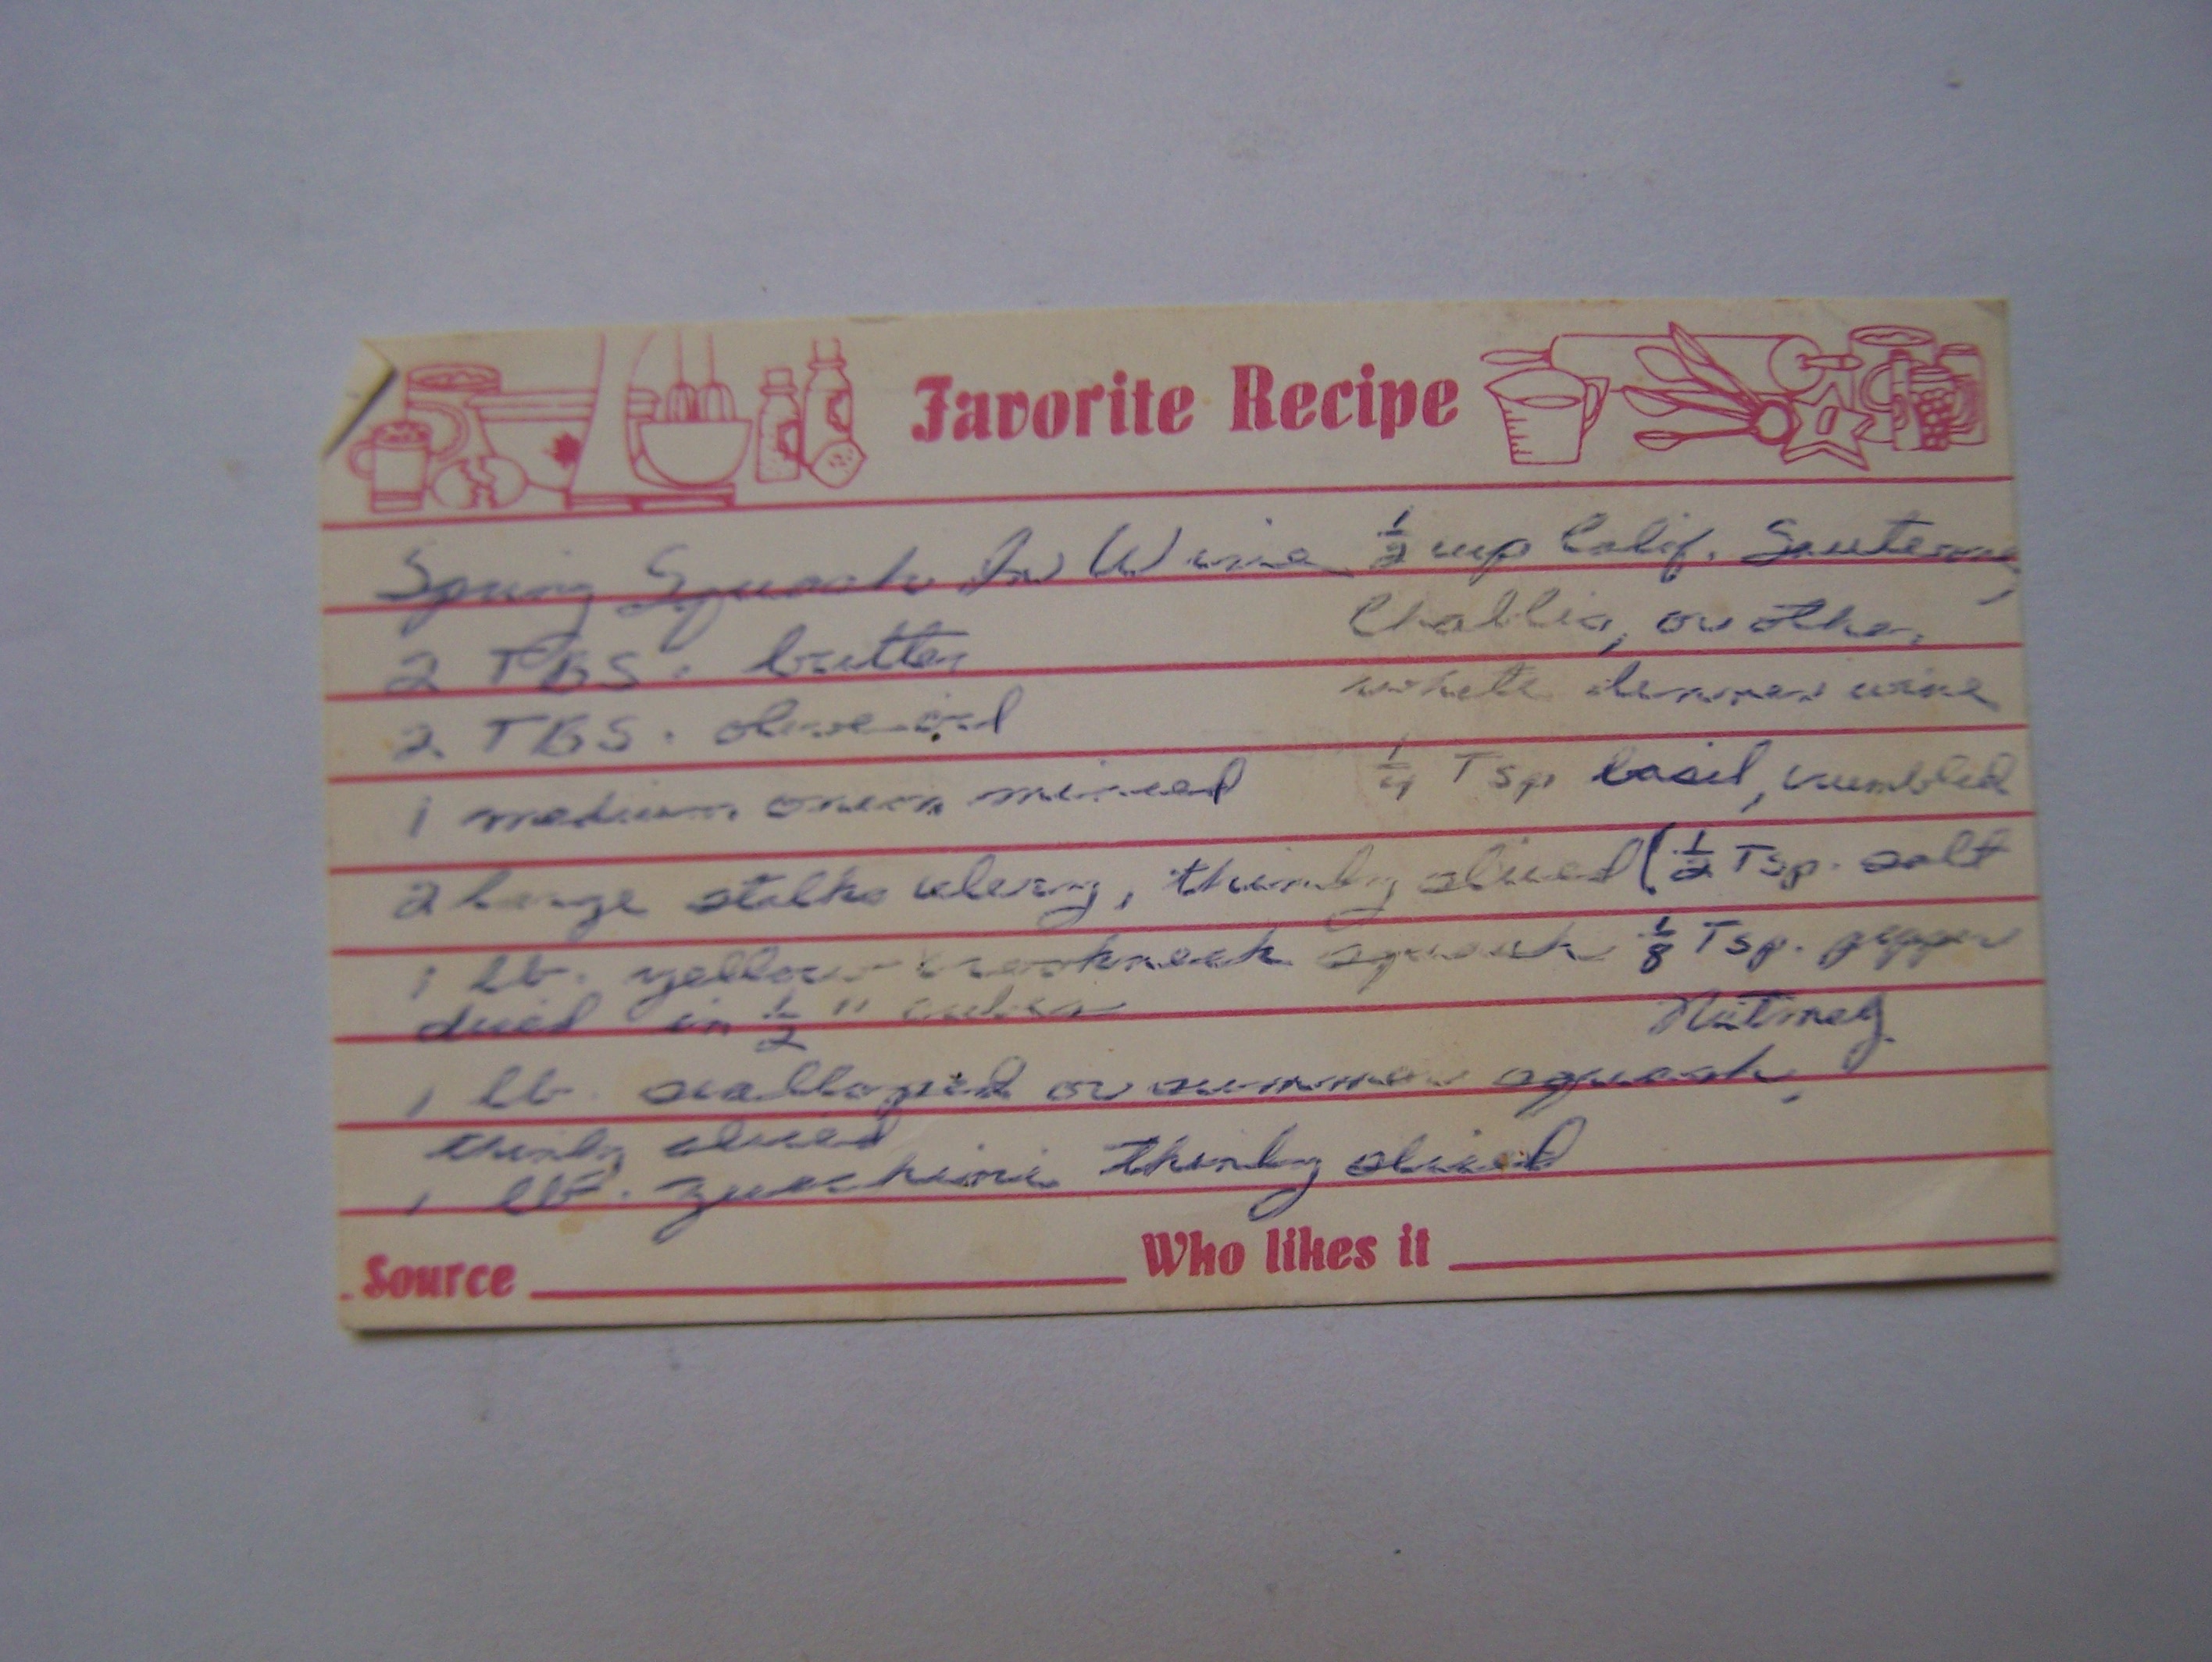 Favorite Recipe
Spring Squash In Wine
2 TBS. butter
2 TBS. olive oil
1 medium onion minced
2 large stalks celery, thinly sliced
1 lb. yellow crookneck squash
diced in 1/2" cubes
1 lb. scalloped or summer squash,
thinly sliced
1 lb. zucchini thinly sliced
1/2 cup Calif. Sauterne,
Chablis, or other
white dinner wine
1/4 Tsp. basil, crumbled
1/2 Tsp. salt
1/8 Tsp. pepper
Nutmeg
Source
Who likes it